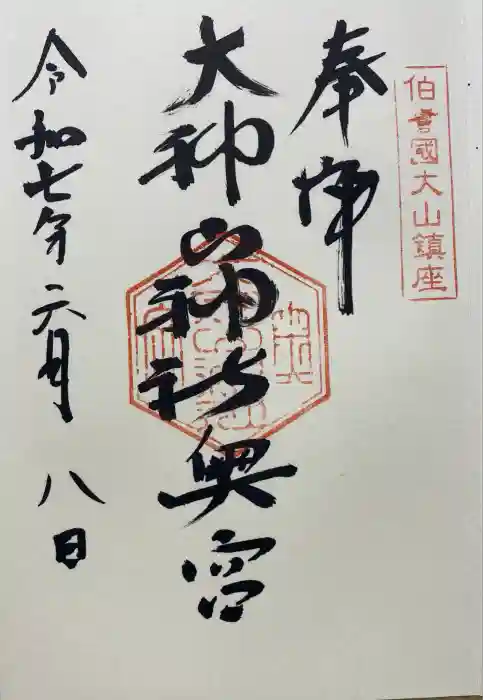 伯耆國大山鎮座
奉拝
大神山神社奥宮
令和七年六月八日